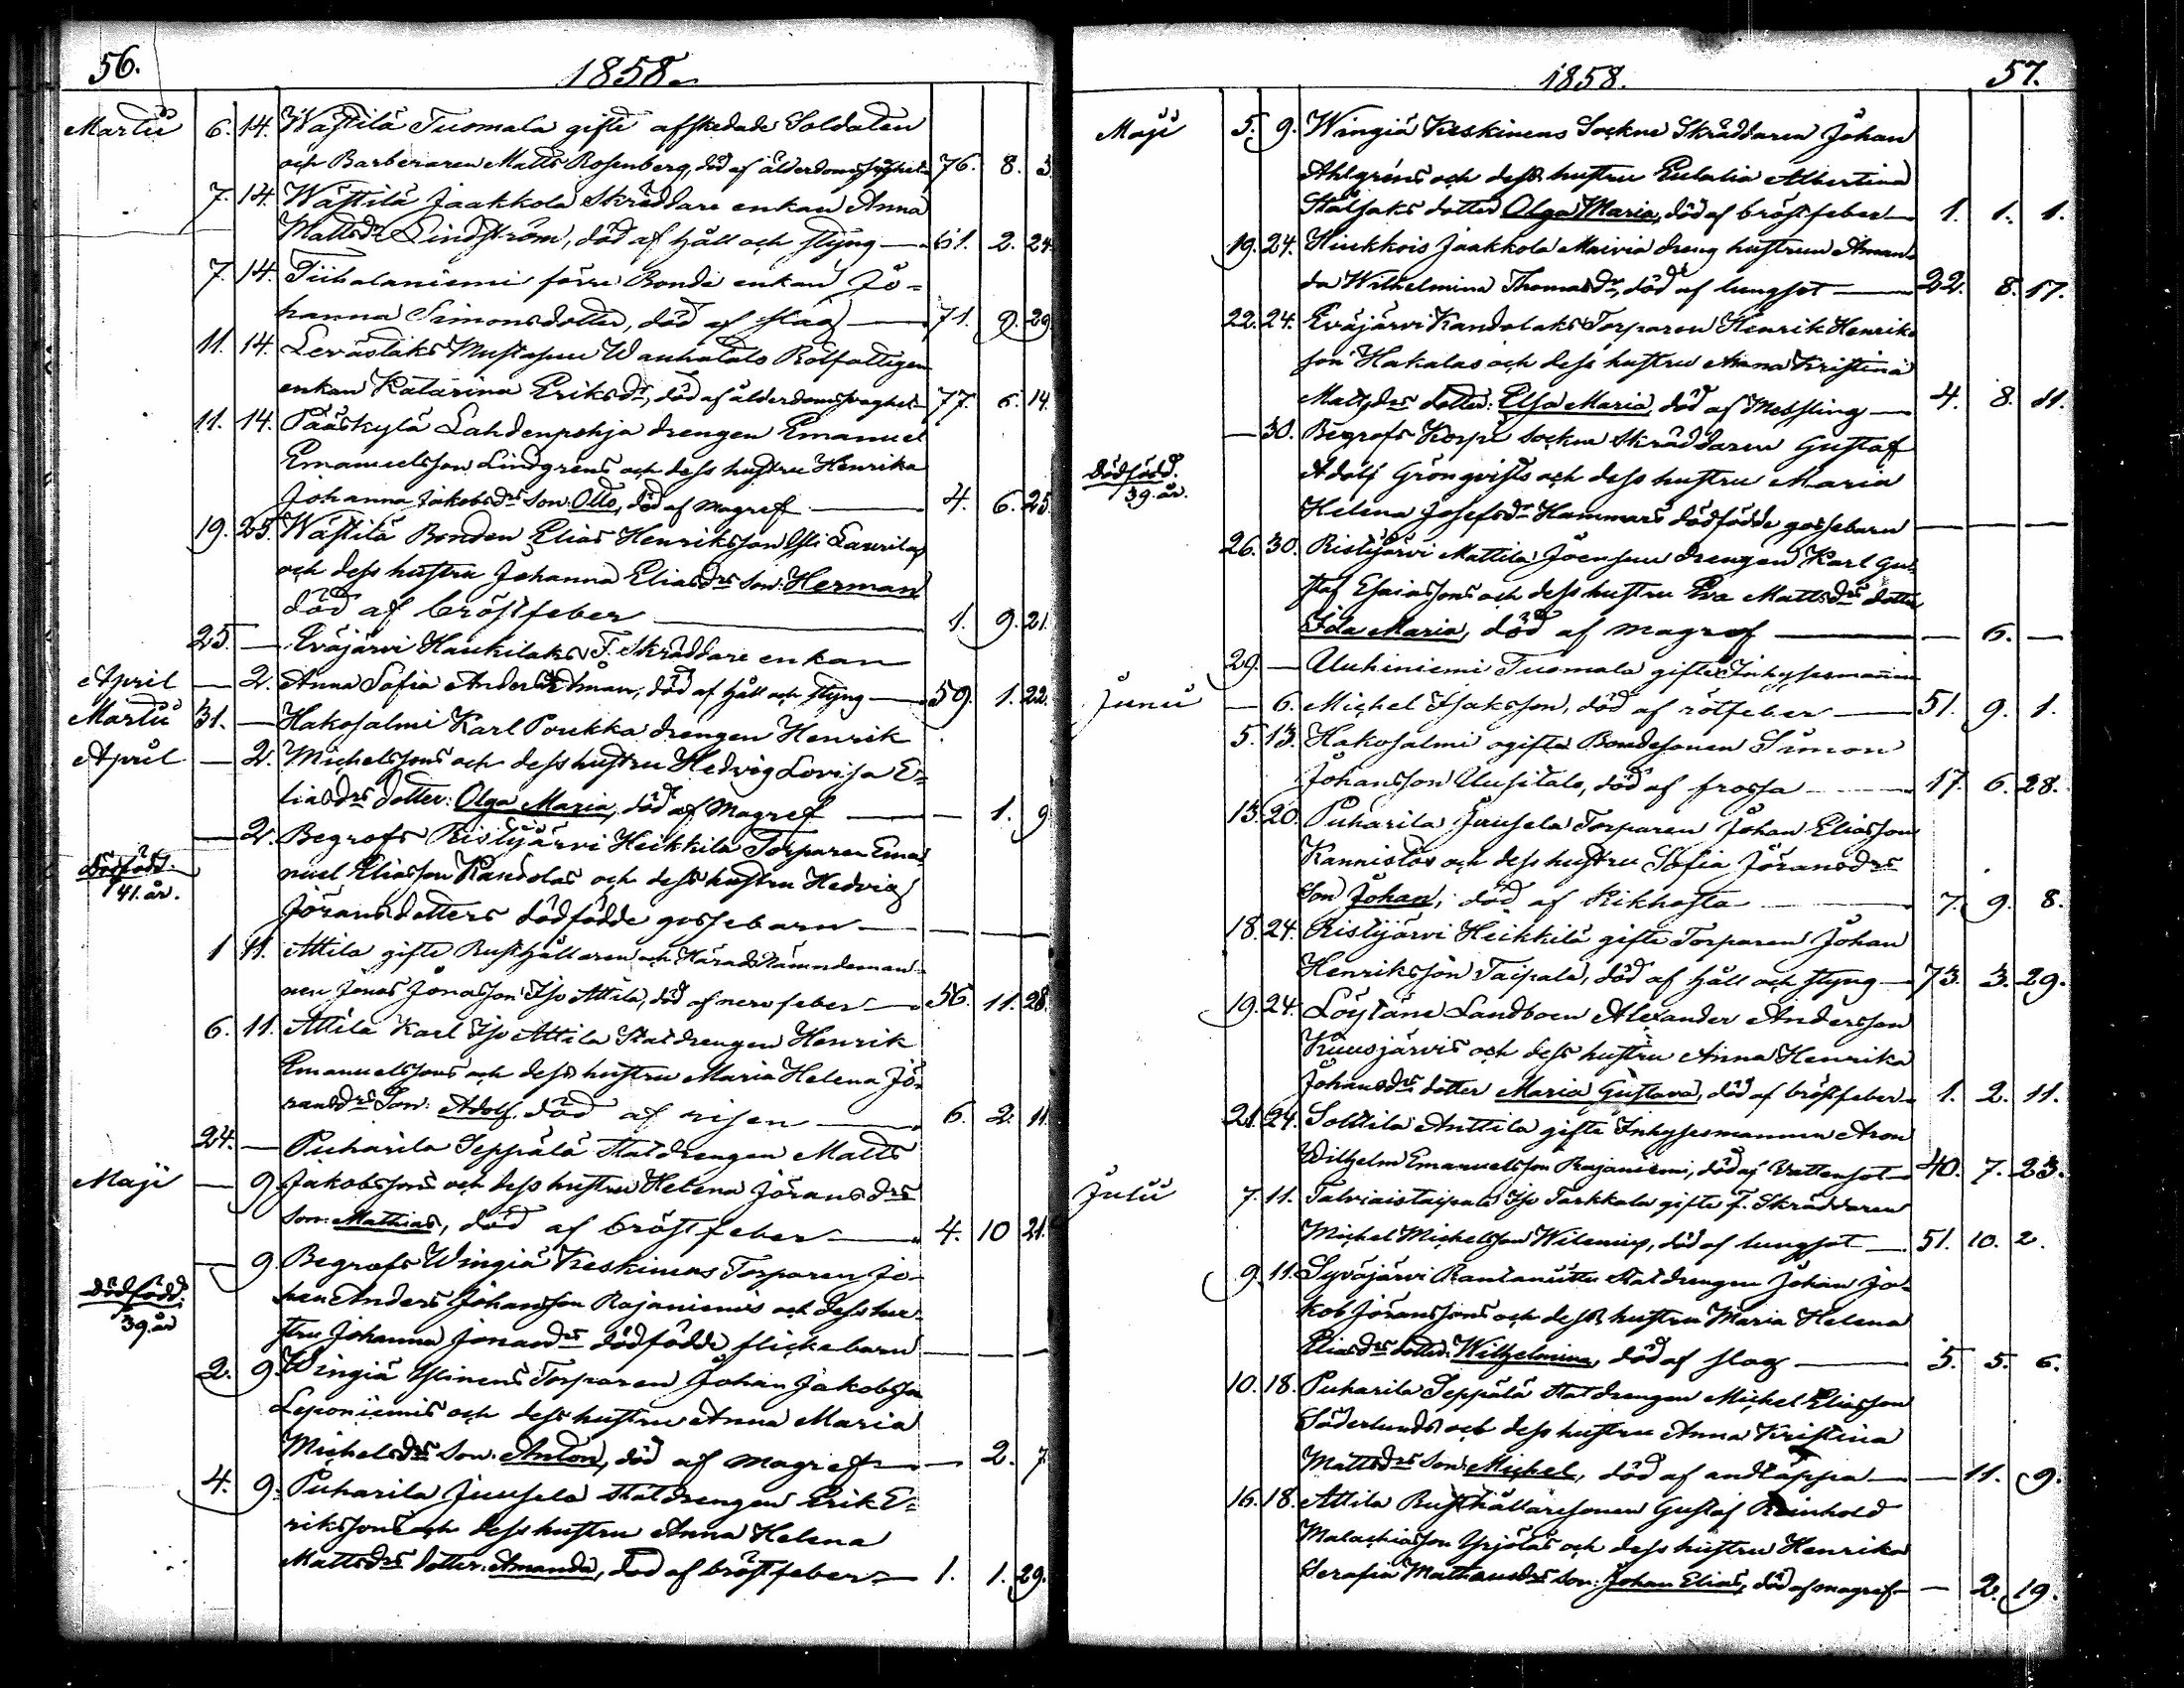 56.
1858.
Martii 6. 14. Wästilä Tuomala gifte afskedade Soldaten
och Barberaren Matts Rosenberg, död af ålderdomssvaghet 76. 8. 3.
7. 14. Wästilä Jaakkola Skräddare enkan Anna
Mattsdr Lindström, död af håll och styng 61. 2. 24.
7. 14. Tiihalaniemi förre Bonde enkan Jo-
hanna Simonsdotter, död af slag 71. 9. 29.
11. 14. Leväslaks Mustapuu Wanhatalo Rotfattigen
enkan Katarina Eriksdr, död af ålderdomssvaghet 77. 6. 14.
11. 14. Pääskylä Lahdenpohja drengen Emanuel
Emanuelsson Lindgrens och dess hustru Henrika
Johanna Jakobsdrs son: Otto, död af magref 4. 6. 25.
19. 25. Wästilä Bonden Elias Henriksson Laurilas
och dess hustru Johanna Eliasdrs son: Herman
död af bröstfeber 1. 9. 21.
25. — Eväjärvi Haukilaks F. Skräddare enkan
April — 2. Anna Sofia Andersdr Åman, död af håll och styng 59. 1. 22.
Martii 31. — Hakosalmi Karl Poukka drengen Henrik
April — 2. Michelssons och dess hustru Hedvig Lovisa E-
liasdrs dotter: Olga Maria, död af Magref — 1. 9
— 2. Begrofs Ristijärvi Heikkilä Torparen Ema-
Dödfödd. nuel Eliasson Kandolas och dess hustru Hedvig
41. år. Jöransdotters dödfödde gossebarn — — —
1 11. Attila gifte Rusthållaren och Häradsnämndeman-
nen Jonas Jonasson Iso Attila, död af nervfeber 56. 11. 28.
6. 11. Attila Karl Iso Attila Statdrengen Henrik
Emanuelssons och dess hustru Maria Helena Jö-
ransdrs Son: Adolf, död af risen 6. 2. 11.
24. — Puharila Seppälä Statdrengen Matts
Maji — 9. Jakobssons och dess hustru Helena Jöransdrs
son: Mathias, död af bröstfeber 4. 10 21.
— 9. Begrofs Wingiä Keskinens Torparen Jo-
Dödfödd. han Anders Johansson Rajaniemis och dess hu-
39. år stru Johanna Jonasdrs dödfödde flickebarn — — —
2. 9. Wingiä Ylinens Torparen Johan Jakobsson
Leponiemis och dess hustru Anna Maria
Michelsdrs son: Anton, död af magref — 2. 7
4. 9. Puharila Juusela statdrengen Erik E-
rikssons och dess hustru Anna Helena
Mattsdrs dotter: Amanda, död af bröstfeber 1. 1. 29.
1858. 57.
Maji 5. 9. Wingiä Keskinens Sockne Skräddaren Johan
Ahlgréns och dess hustru Eulalia Albertina
dotter Olga Maria, död af bröstfeber 1. 1. 1.
19. 24. Hiukkois Jaakkola dreng hustrun Aman-
da Wilhelmina Thomasdr, död af lungsot 22. 8. 17.
22. 24. Eväjärvi Kandolaks Torparen Henrik Henriks-
son Hakalas och dess hustru Anna Kristina
Mattsdrs dotter: Elsa Maria, död af Messling 4. 8. 11.
— 30. Begrofs Korpi sockne skräddaren Gustaf
Dödfödd. Adolf Grönqvists och dess hustru Maria
39. år. Helena Josefsdr Hammars dödfödde gossebarn — — —
26. 30. Ristijärvi Mattila Joensuu drengen Karl Gu-
staf Esaiassons och dess hustru Eva Mattsdrs dotter
Ida Maria, död af magref — 6. —
29. — Uuhiniemi Tuomala gifte Inhysesmannen
Junii — 6. Michel Isaksson, död af rötfeber 51. 9. 1.
5. 13. Hakosalmi ogifte Bondesonen Simon
Johansson Uusitalo, död af frossa 17. 6. 28.
13. 20. Puharila Juusela Torparen Johan Eliasson
Kannistos och dess hustru Sofia Jöransdrs
Son Johan, död af Kikhosta 7. 9. 8.
18. 24. Ristijärvi Heikkilä gifte Torparen Johan
Henriksson Taipale, död af håll och styng 73. 3. 29.
19. 24. Löytäne Landboen Alexander Andersson
Kuusjärvis och dess hustru Anna Henrika
Johansdrs dotter Maria Gustava, död af bröstfeber 1. 2. 11.
21. 24. Solttila Anttila gifte Inhysesmannen Aron
Wilhelm Emanuelsson Rajaniemi, död af Vattensot 40. 7. 23.
Julii 7. 11. Talviaistaipale Iso Tarkkala gifte f. Skräddaren
Michel Michelsson Wilenius, död af lungsot 51. 10. 2.
9. 11. Syväjärvi Rantanuttu statdrengen Johan Ja-
kob Jöranssons och dess hustru Maria Helena
Eliasdrs dotter: Wilhelmina, död af slag 5. 5. 6.
10. 18. Puharila Seppälä statdrengen Michel Eliasson
Söderlunds och dess hustru Anna Kristina
Mattsdrs son: Michel, död af andtäppa — 11. 9.
16. 18. Attila Rusthållaresonen Gustaf Reinhold
Malachiasson Yrjölas och dess hustru Henrika
Serafia Mathausdrs son: Johan Elias, död af magref — 2. 19.